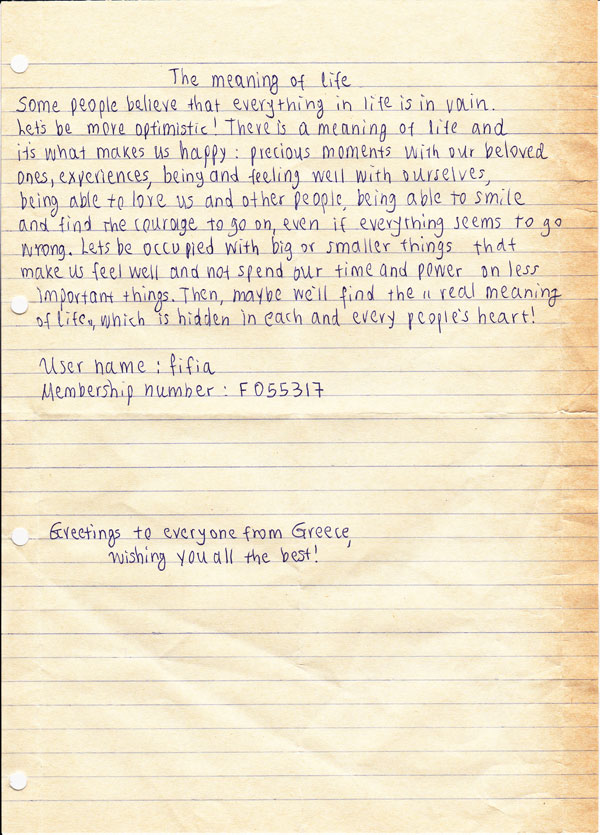 The meaning of life
Some people believe that everything in life is in vain.
Let's be more optimistic! There is a meaning of life and
it's what makes us happy: precious moments with our beloved
ones, experiences, being and feeling well with ourselves,
being able to love us and other people, being able to smile
and find the courage to go on, even if everything seems to go
wrong. Lets be occupied with big or smaller things that
make us feel well and not spend our time and power on less
important things. Then, maybe we'll find the „ real meaning
of life„, which is hidden in each and every people's heart!
User name : fifia
Membership number : F055317
Greetings to everyone from Greece,
wishing you all the best!